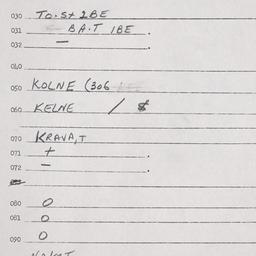 030 TO.S+ 2BE
031 BA.T 1BE .
032 — .
040
050 KOLNE (306
060 KELNE /
070 KRAVA,T
071 + .
072 — .
080 O
081 O
090 O